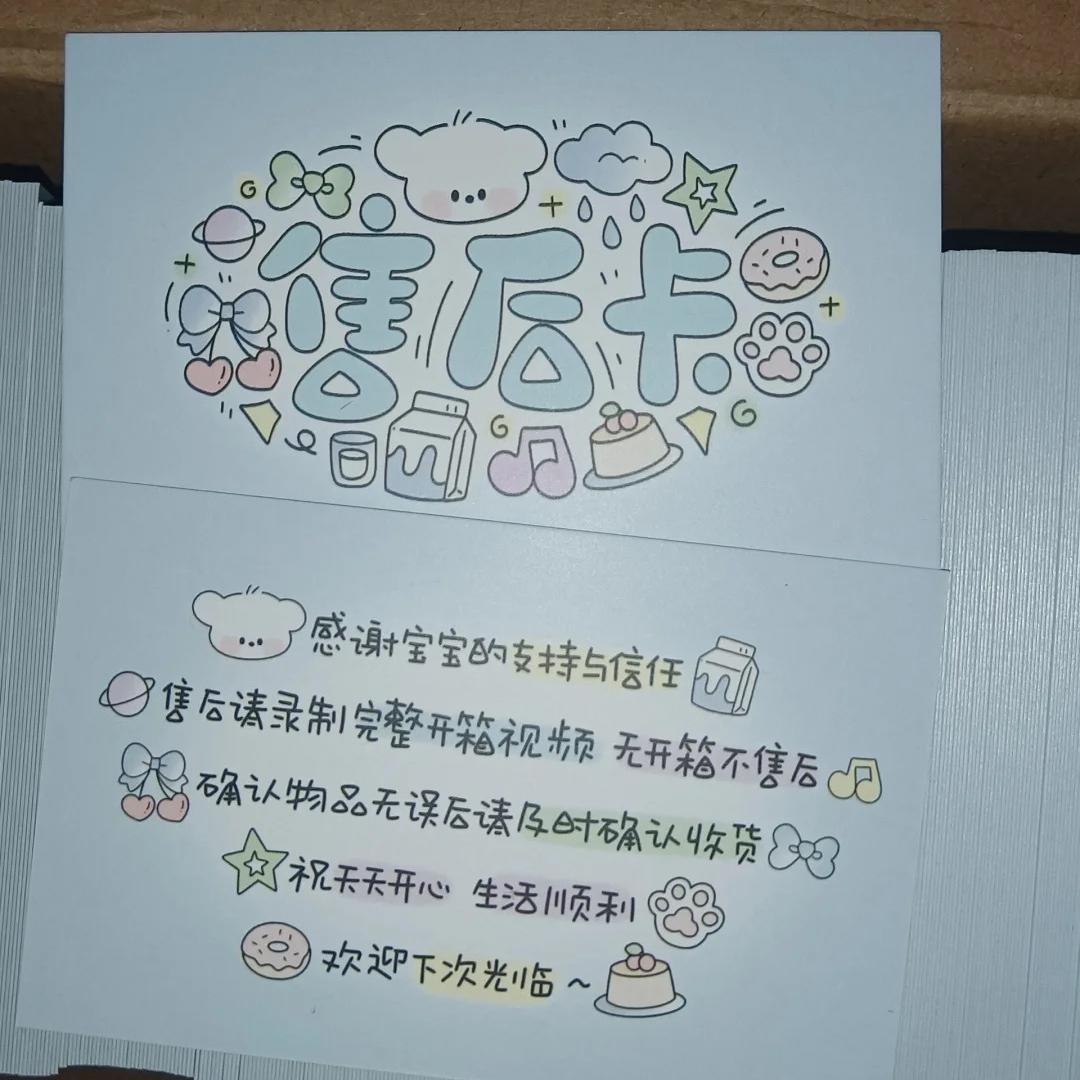 售后卡
感谢宝宝的支持与信任
售后请录制完整开箱视频 无开箱不售后
确认物品无误后请及时确认收货
祝天天开心 生活顺利
欢迎下次光临~